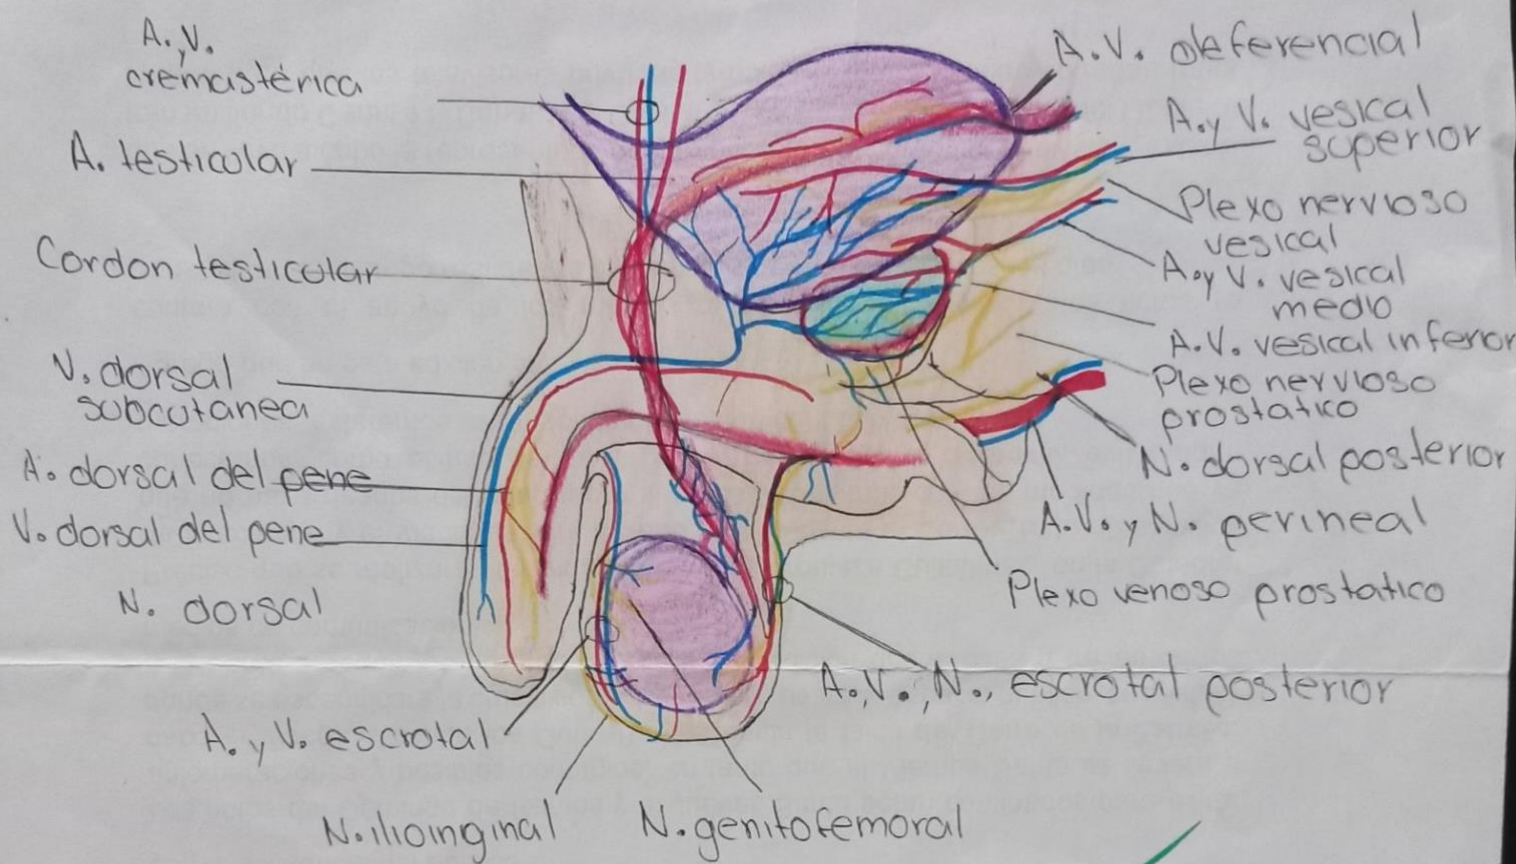 A.yV.
cremastérica
A. testicular
Cordon testicular
V. dorsal
subcutanea
A. dorsal del pene
V. dorsal del pene
N. dorsal
A. y V. escrotal
N. ilioinginal
N. genitofemoral
A.V. deferencial
A.y V. vesical
superior
Plexo nervioso
vesical
A.y V. vesical
medio
A.V. vesical inferior
Plexo nervioso
prostatico
N. dorsal posterior
A.V. y N. perineal
Plexo venoso prostatico
A.,V., N., escrotal posterior